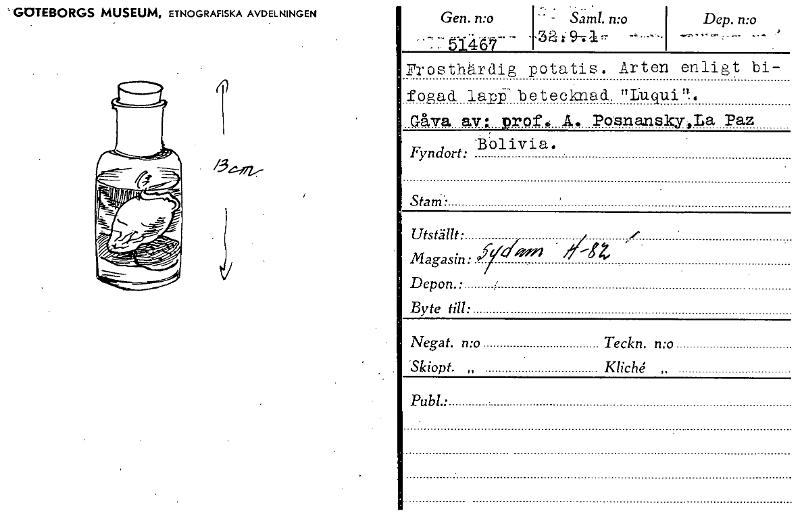 GÖTEBORGS MUSEUM, ETNOGRAFISKA AVDELNINGEN
13 cm
Gen. n:o Saml. n:o Dep. n:o
51467 32.9.1
Frosthärdig potatis. Arten enligt bi-
fogad lapp betecknad "Luqui".
Gåva av: prof. A. Posnansky, La Paz
Fyndort: Bolivia.
Stam:
Utställt:
Magasin: Sydam H-82
Depon.:
Byte till:
Negat. n:o Teckn. n:o
Skiopt. „ Kliché „
Publ.: